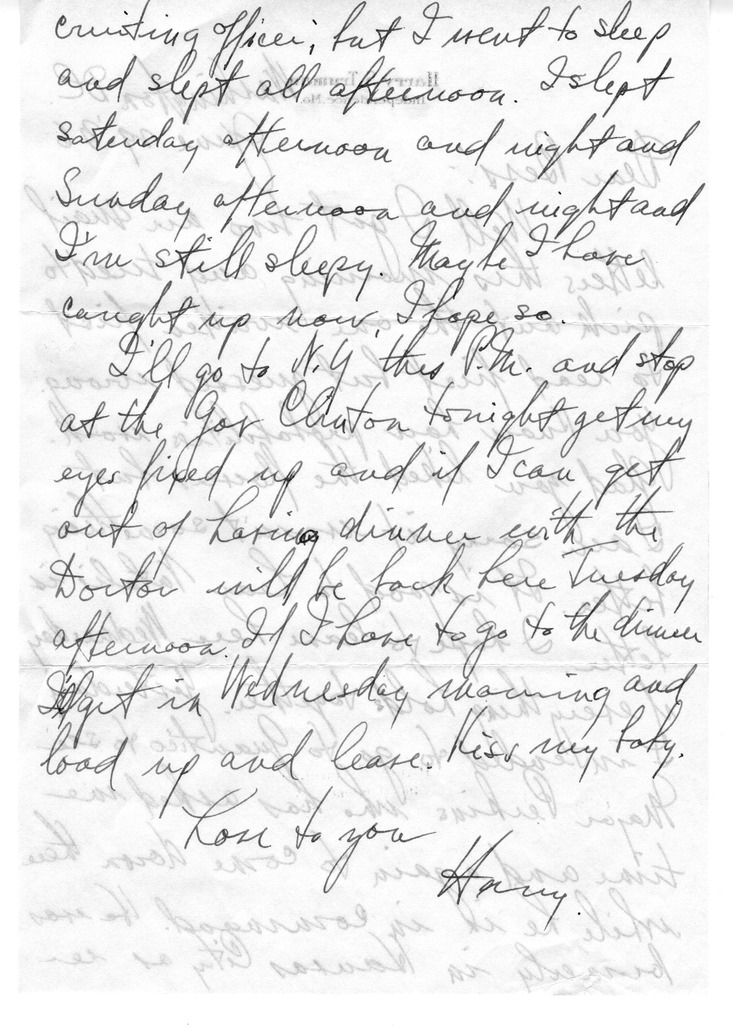 cruiting officer, but I went to sleep
and slept all afternoon. I slept
Saturday afternoon and night and
Sunday afternoon and night and
I'm still sleepy. Maybe I have
caught up now, I hope so.
I'll go to N.Y. this P.M. and stop
at the Gov Clinton tonight get my
eyes fixed up and if I can get
out of having dinner with the
Doctor will be back here Tuesday
afternoon. If I have to go to the dinner
I'll get in Wednesday morning and
load up and leave. Kiss my baby.
Love to you
Harry.